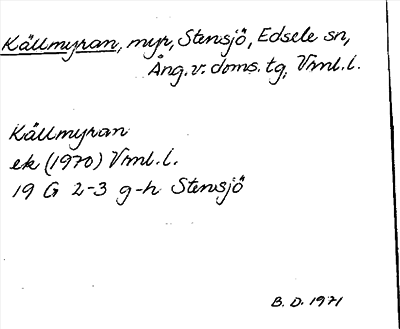 Källmyran, myr, Stensjö, Edsele sn,
Ång. v. doms. tg, Vrml. l.
Källmyran
ek (1970) Vrml. l.
19 G 2-3 g-h Stensjö
B. D. 1971